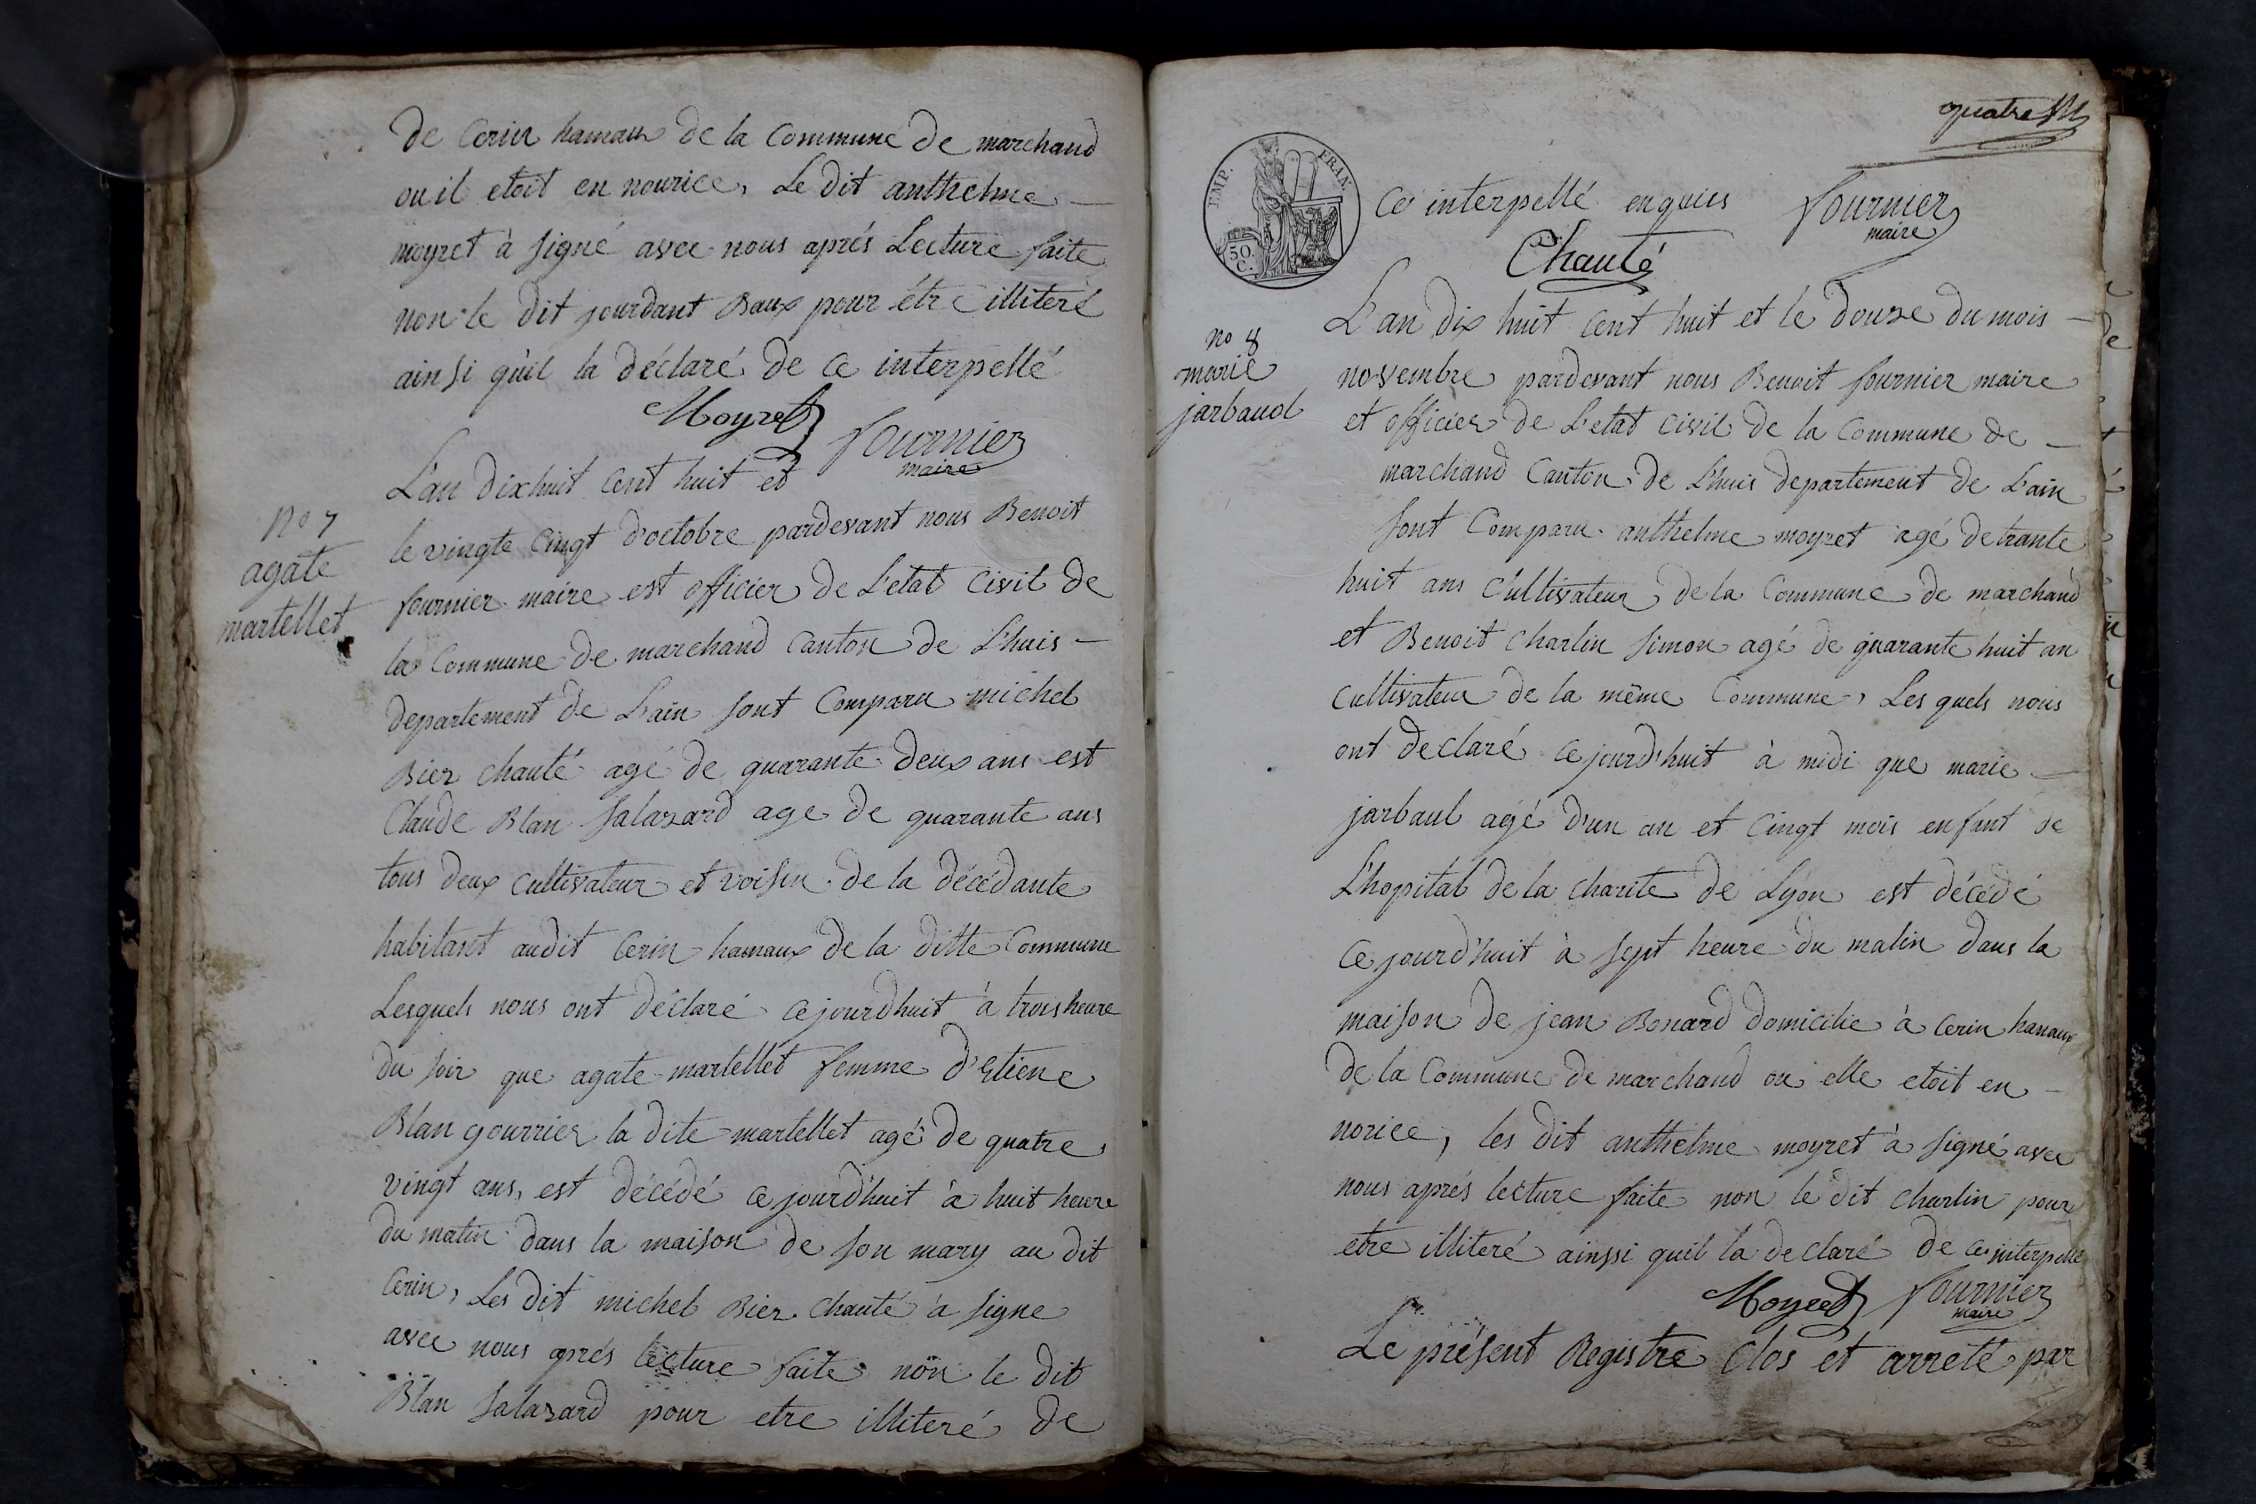 de Cerin hamaux de la Commune de marchand
ou il etoit en nourice, Le dit anthelme
moyret à signé avec nous aprés Lecture faite
non le dit jourdant Baux pour étre illiteré
ainsi qu'il la déclaré de ce interpellé
Moyret
fournier
maire
No 7
agate
martellet
L'an dixhuit cent huit et
le vingte cinqt d'octobre pardevant nous Benoit
fournier maire est officier de L'etat Civil de
la Commune de marchand Canton de L'huis
departement de L'ain sont Comparu michel
Bier chauté agé de quarante deux ans est
Claude Blan Salazard age de quarante ans
tous deux cultivateur et voisin de la décédante
habitant audit Cerin hamaux de la ditte Commune
Lesquels nous ont déclaré ce jourdhuit à trois heure
du soir que agate martellet femme d'Etiene
Blan gourrier la dite martellet agé de quatre
vingt ans, est décédé ce jourd'huit à huit heure
du matin dans la maison de son mary au dit
Cerin, Les dit michel Bier chauté à signe
avec nous aprés lecture faite non le dit
Blan Salazard pour etre illiteré de
quatre
EMP. FRAN.
50.
C.
Ce interpellé enquis
fournier
maire
Chauté
No 8
marie
jarbaud
L'an dix huit cent huit et le douze du mois
novembre pardevant nous Benoit fournier maire
et officier de L'etat civil de la Commune de
marchand Canton de L'huis departement de L'ain
sont Comparu anthelme moyret agé de trante
huit ans Cultivateur de la Commune de marchand
et Benoit Charlin Simon agé de quarante huit an
Cultivateur de la même Commune, Les quels nous
ont declaré ce jourd'huit à midi que marie
jarbaul agé d'un an et cinqt mois enfant de
L'hopital de la charite de Lyon est décédé
ce jourd'huit à sept heure du matin dans la
maison de jean Bonard domicilie à Cerin hamaux
de la Commune de marchand ou elle etoit en
norice, les dit anthelme moyret à signé avec
nous aprés lecture faite non le dit Charlin pour
etre illiteré ainssi quil la declaré de ce interpellé
Moyret
fournier
maire
Le présent Registre Clos et arreté par